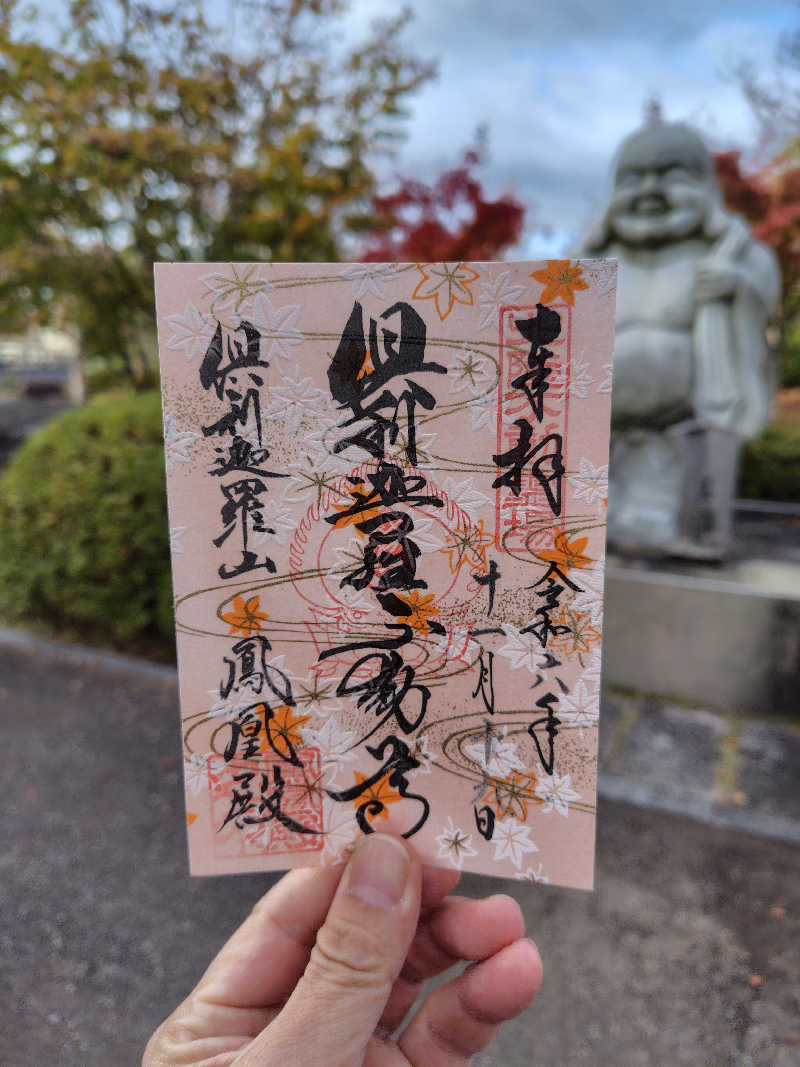 奉拝
令和六年
十一月十日
倶利迦羅不動尊
倶利迦羅山
鳳凰殿